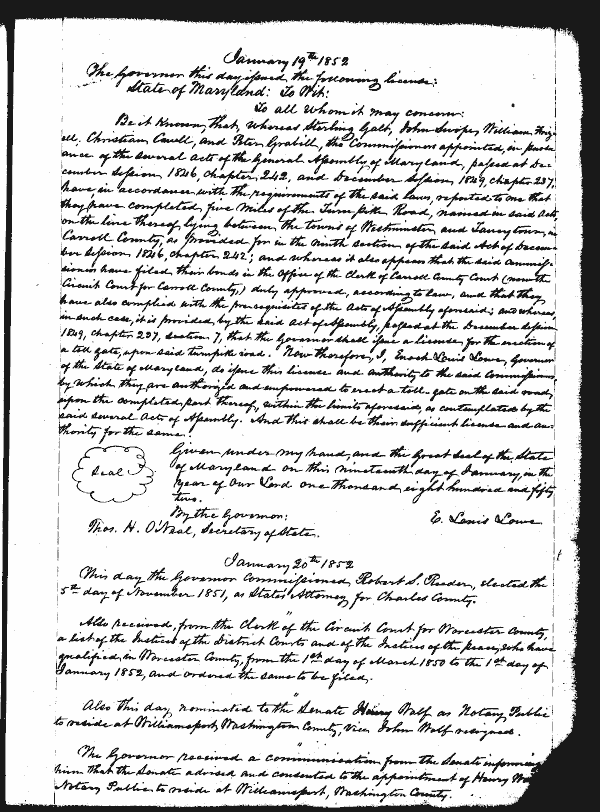 January 19th 1852
The Governor this day issued the following license:
State of Maryland: To Wit:
To all Whom it may concern:
Be it Known, that, Whereas Sterling Galt, John Swope, William
Christian Cavell, and Peter Grabill, the Commissioners appointed, in pursu-
ance of the several Acts of the General Assembly of Maryland, passed at De-
cember Session 1846, chapter 242, and December Session 1849, chapter 237,
have in accordance with the requirements of the said laws, reported to me that
they have completed five miles of the Turnpike Road, named in said Acts,
on the line thereof lying between the towns of Westminster and Taneytown, in
Carroll County, as provided for in the ninth section of the said Act of Decem-
ber Session 1846, chapter 242; and whereas it also appears that the said Commis-
sioners have filed their bonds in the Office of the Clerk of Carroll County Court (now the
Circuit Court for Carroll County,) duly approved, according to law, and that they
have also complied with the prerequisites of the Acts of Assembly aforesaid; and whereas,
in such case, it is provided, by the said Act of Assembly, passed at the December Session
1849, chapter 237, section 7, that the Governor shall issue a license, for the erection of
a toll gate, upon said turnpike road. Now therefore, I, Enoch Louis Lowe, Governor
of the State of Maryland, do issue this license and authority to the said Commissioners,
by which they are authorized and empowered to erect a toll-gate on the said road,
upon the completed part thereof, within the limits aforesaid, as contemplated by the
said several Acts of Assembly. And this shall be their sufficient license and au-
thority for the same.
Seal
Given under my hand, and the Great Seal of the State
of Maryland on this nineteenth day of January, in the
year of Our Lord one thousand eight hundred and fifty
two.
By the Governor:
E. Louis Lowe
Thos. H. O'Neal, Secretary of State.
January 20th 1852
This day the Governor Commissioned, Robert S. Reeder, elected the
5th day of November 1851, as States Attorney for Charles County.
Also received, from the Clerk of the Circuit Court for Worcester County,
a list of the Justices of the District Courts and of the Justices of the peace, who have
qualified in Worcester County, from the 1st day of March 1850 to the 1st day of
January 1852, and ordered the same to be filed.
Also this day nominated to the Senate Henry Wolf as Notary Public
to reside at Williamsport, Washington County, vice John Wolf resigned.
The Governor received a communication from the Senate informing
him that the Senate advised and consented to the appointment of Henry
Notary Public to reside at Williamsport, Washington County.